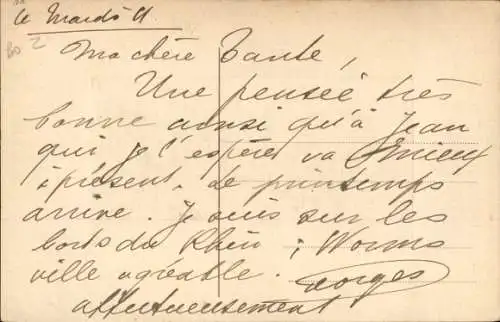 le Mardi 11
Ma chère Tante,
Une pensée très
bonne ainsi qu'à Jean
qui je l'espère va mieux
à présent. Le printemps
arrive. Je suis sur les
bords du Rhin ; Worms
ville agréable. Georges
affectueusement